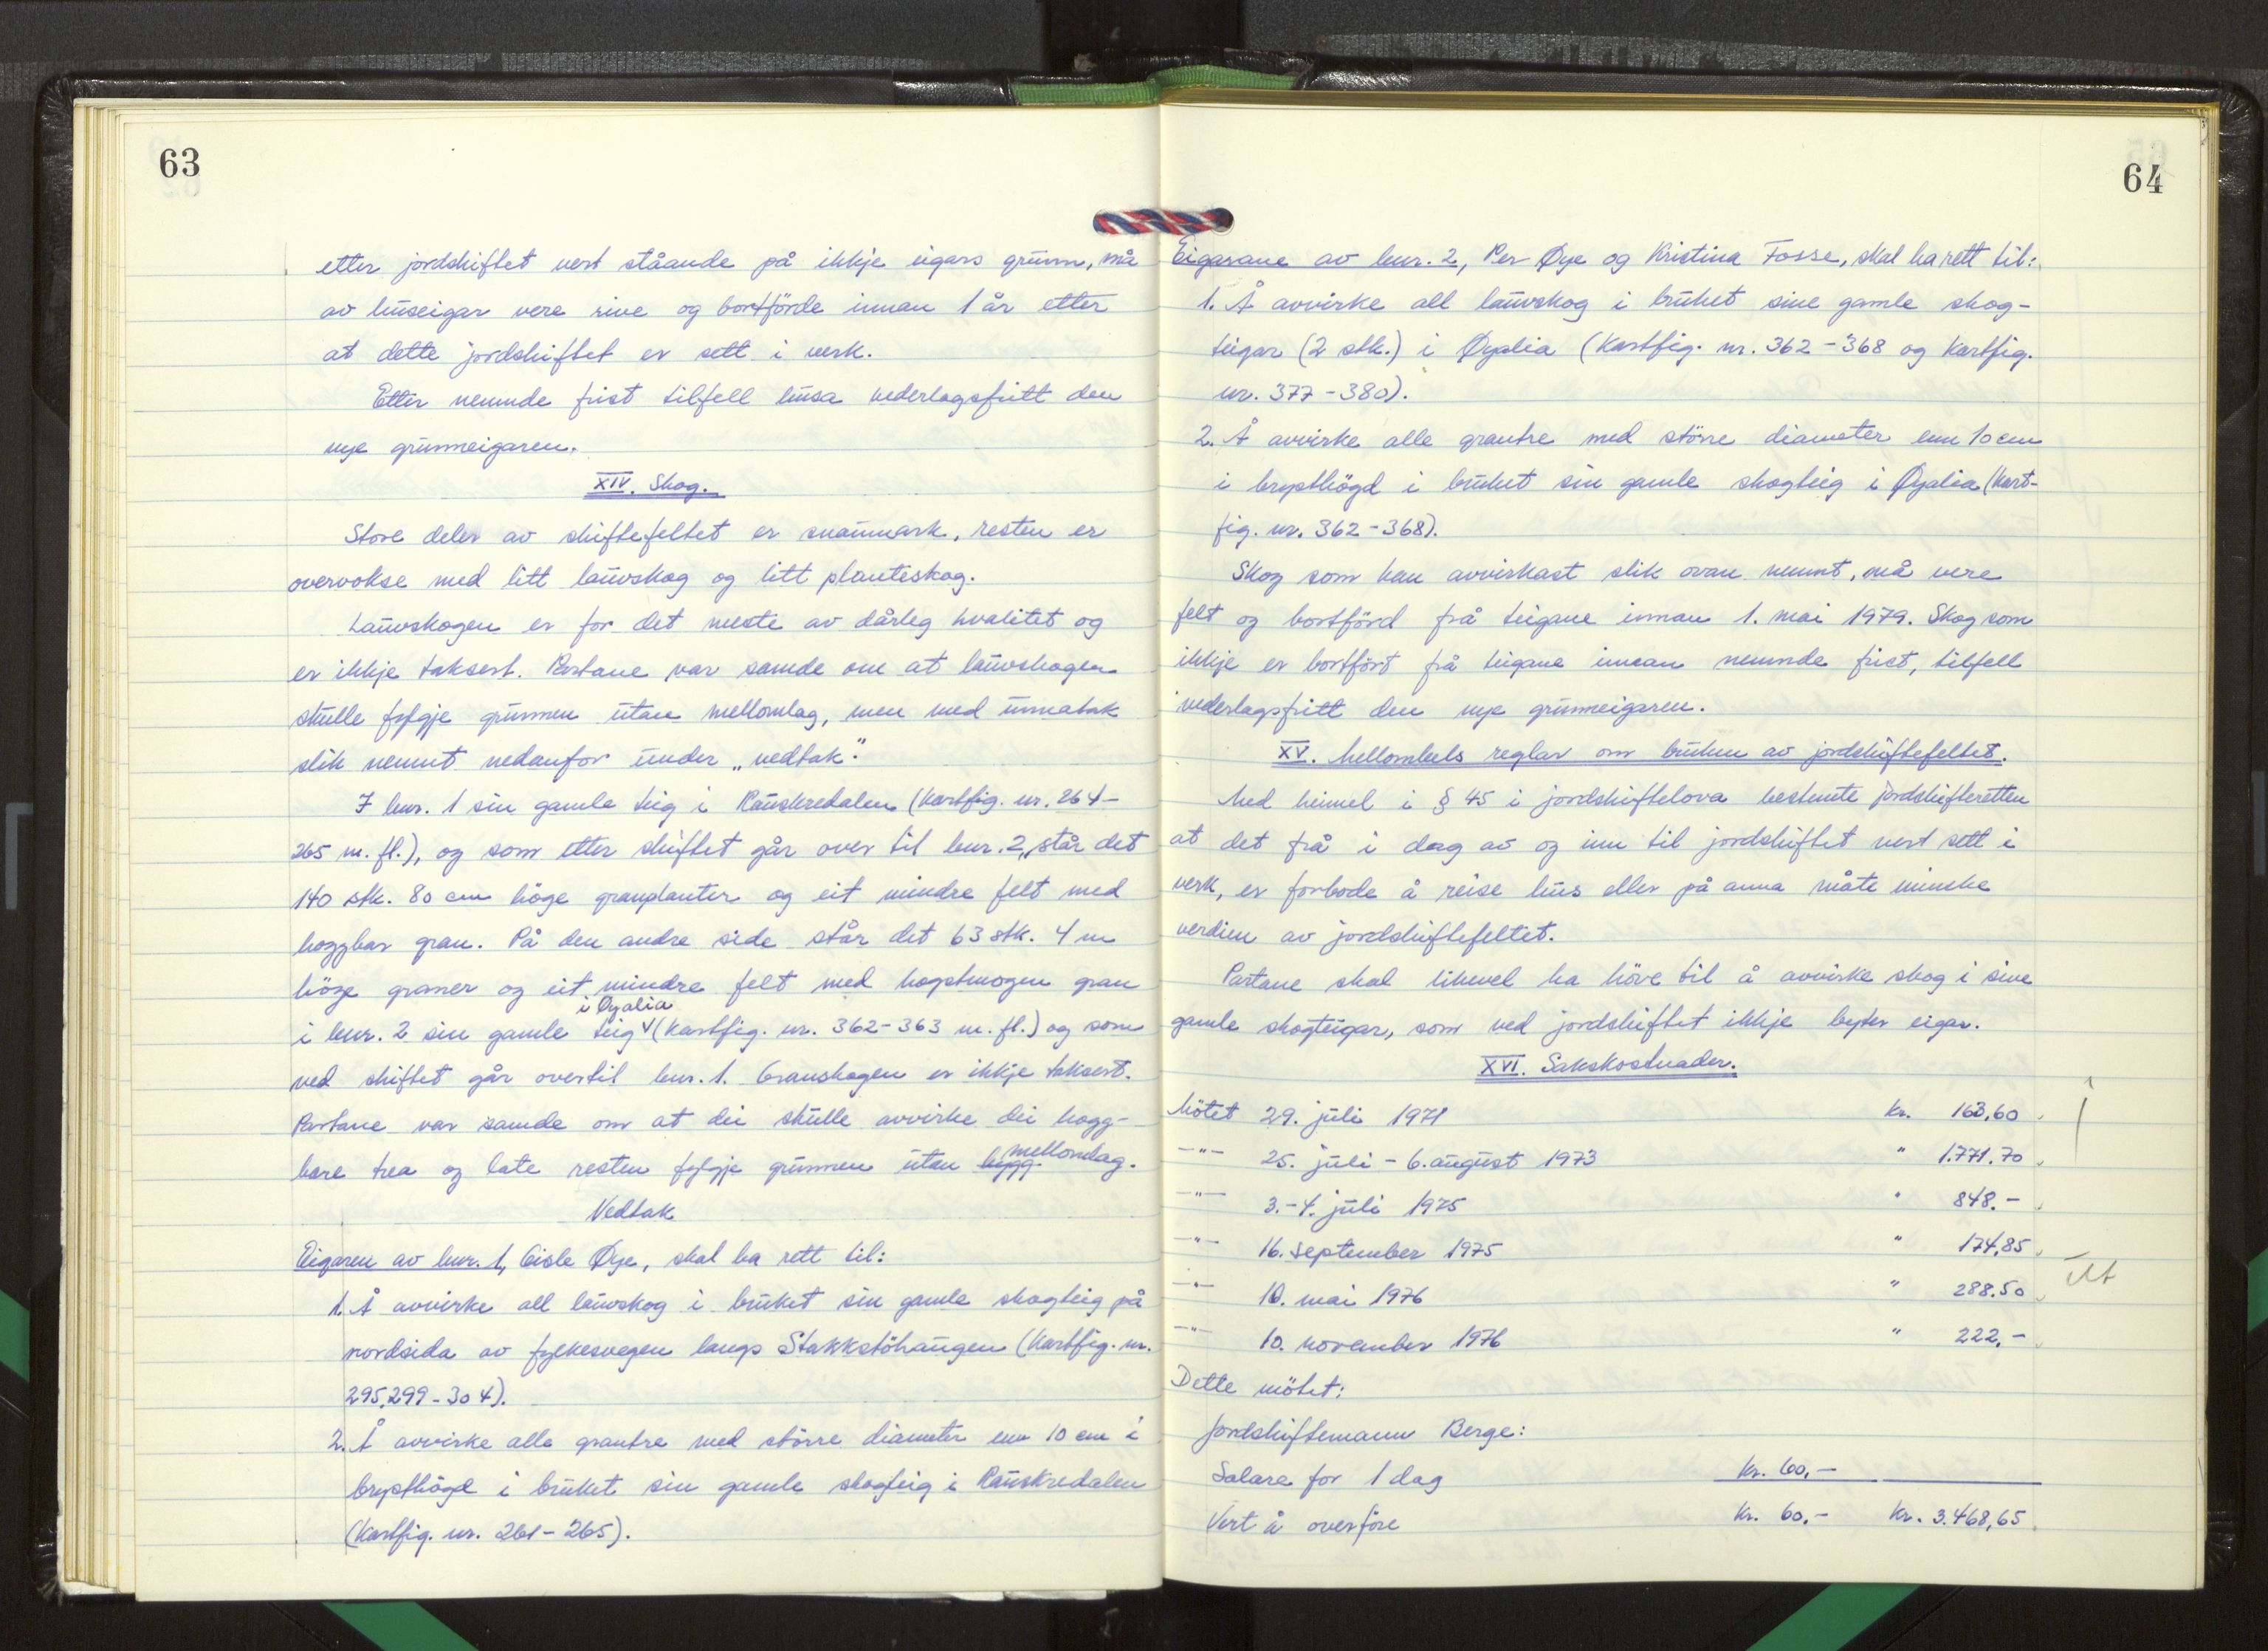 63
etter jordskiftet vert ståande på ikkje eigars grunn, må
av huseigar vere rive og bortförde innan 1 år etter
at dette jordskiftet er sett i verk.
Etter nemnde frist tilfell husa vederlagsfritt den
nye grunneigaren.
XIV. Skog.
Store deler av skiftefeltet er snaumark, resten er
overvokse med litt lauvskog og litt planteskog.
Lauvskogen er for det meste av dårleg kvalitet og
er ikkje taksert. Partane var samde om at lauvskogen
skulle fylgje grunnen utan mellomlag, men med unnatak
slik nemnt nedanfor under „vedtak".
I bnr. 1 sin gamle teig i Rauskredalen (Kartfig. nr. 264-
265 m. fl.), og som etter skiftet går over til bnr. 2, står det
140 stk. 80 cm höge granplanter og eit mindre felt med
hoggbar gran. På den andre side står det 63 stk. 4 m
höge graner og eit mindre felt med hogstmogen gran
i Øyalia
i bnr. 2 sin gamle teig (Kartfig. nr. 362-363 m. fl.) og som
ved skiftet går over til bnr. 1. Granskogen er ikkje taksert.
Partane var samde om at dei skulle avvirke dei hogg-
bare trea og late resten fylgje grunnen utan mellomlag.
Vedtak
Eigaren av bnr. 1, Gisle Øye, skal ha rett til:
1. Å avvirke all lauvskog i bruket sin gamle skogteig på
nordsida av fylkesvegen langs Stakkstöhaugen (Kartfig. nr.
295, 299-304).
2. Å avvirke alle grantre med större diameter enn 10 cm i
brysthögd i bruket sin gamle skogteig i Rauskredalen
(Kartfig. nr. 261-265).
64
Eigarane av bnr. 2, Per Øye og Kristina Fosse, skal ha rett til:
1. Å avvirke all lauvskog i bruket sine gamle skog-
teigar (2 stk.) i Øyalia (Kartfig. nr. 362-368 og Kartfig.
nr. 377-380).
2. Å avvirke alle grantre med större diameter enn 10 cm
i brysthögd i bruket sin gamle skogteig i Øyalia (Kart-
fig. nr. 362-368).
Skog som kan avvirkast slik ovan nemnt, må vere
felt og bortförd frå teigane innan 1. mai 1979. Skog som
ikkje er bortfört frå teigane innan nemnde frist, tilfell
vederlagsfritt den nye grunneigaren.
XV. Mellombels reglar om bruken av jordskiftefeltet.
Med heimel i § 45 i jordskiftelova bestemte jordskifteretten
at det frå i dag av og inn til jordskiftet vert sett i
verk, er forbode å reise hus eller på anna måte minske
verdien av jordskiftefeltet.
Partane skal likevel ha höve til å avvirke skog i sine
gamle skogteigar, som ved jordskiftet ikkje byter eigar.
XVI. Sakskostnader.
Mötet 29. juli 1971 kr. 163,60
-"- 25. juli - 6. august 1973 " 1.771.70
-"- 3.-4. juli 1975 " 848.-
-"- 16. september 1975 " 174,85
-"- 10. mai 1976 " 288.50
-"- 10. november 1976 " 222,-
Dette mötet:
Jordskiftemann Berge:
Salare for 1 dag kr. 60,-
Vert å overföre kr. 60,- kr. 3.468,65